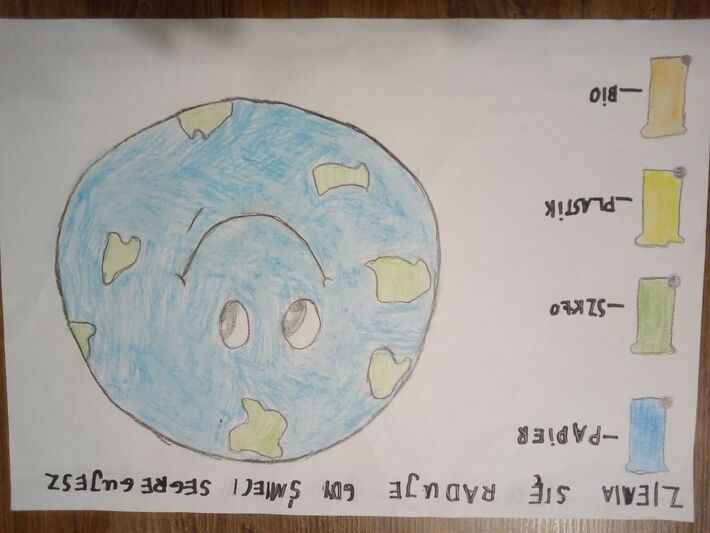 ZIEMIA SIĘ RADUJE GDY ŚMIECI SEGREGUJESZ
-PAPIER
-SZKŁO
-PLASTIK
-BIO